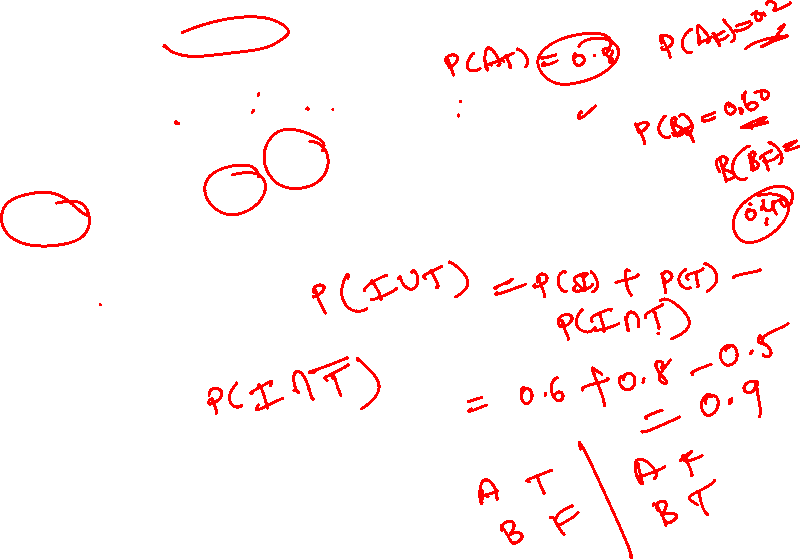 P(AT) = 0.8 P(AF) = 0.2
P(B) = 0.60
B(BF) =
0.40
P(I∪T) = P(I) + P(T) −
P(I∩T)
P(I∩T̅)
= 0.6 + 0.8 − 0.5
= 0.9
A T | A F
B F | B T